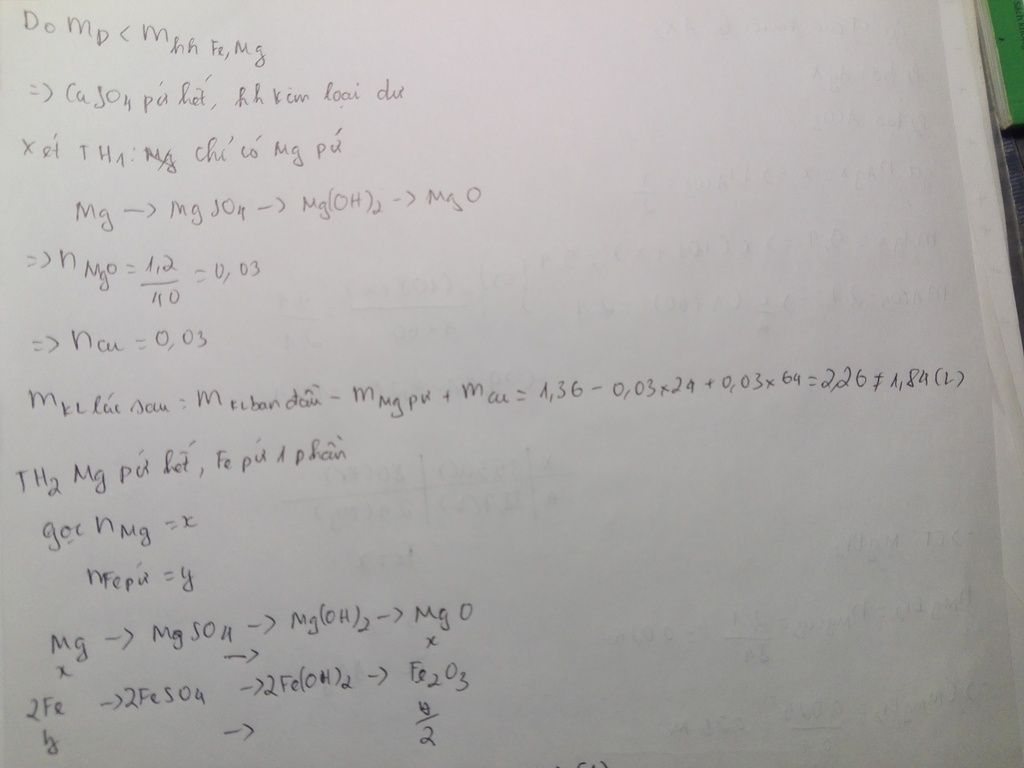 Do mD < mhh Fe, Mg
=> CuSO4 pứ hết, hh kim loại dư
Xét TH1: Mg chỉ có Mg pứ
Mg -> MgSO4 -> Mg(OH)2 -> MgO
=> nMgO = 1,2/40 = 0,03
=> nCu = 0,03
mKL lúc sau = mKL ban đầu - mMg pứ + mCu = 1,36 - 0,03x24 + 0,03x64 = 2,26 ≠ 1,84 (L)
TH2 Mg pứ hết, Fe pứ 1 phần
gọi nMg = x
nFe pứ = y
Mg -> MgSO4 -> Mg(OH)2 -> MgO
x -> x
2Fe -> 2FeSO4 -> 2Fe(OH)2 -> Fe2O3
y -> y/2